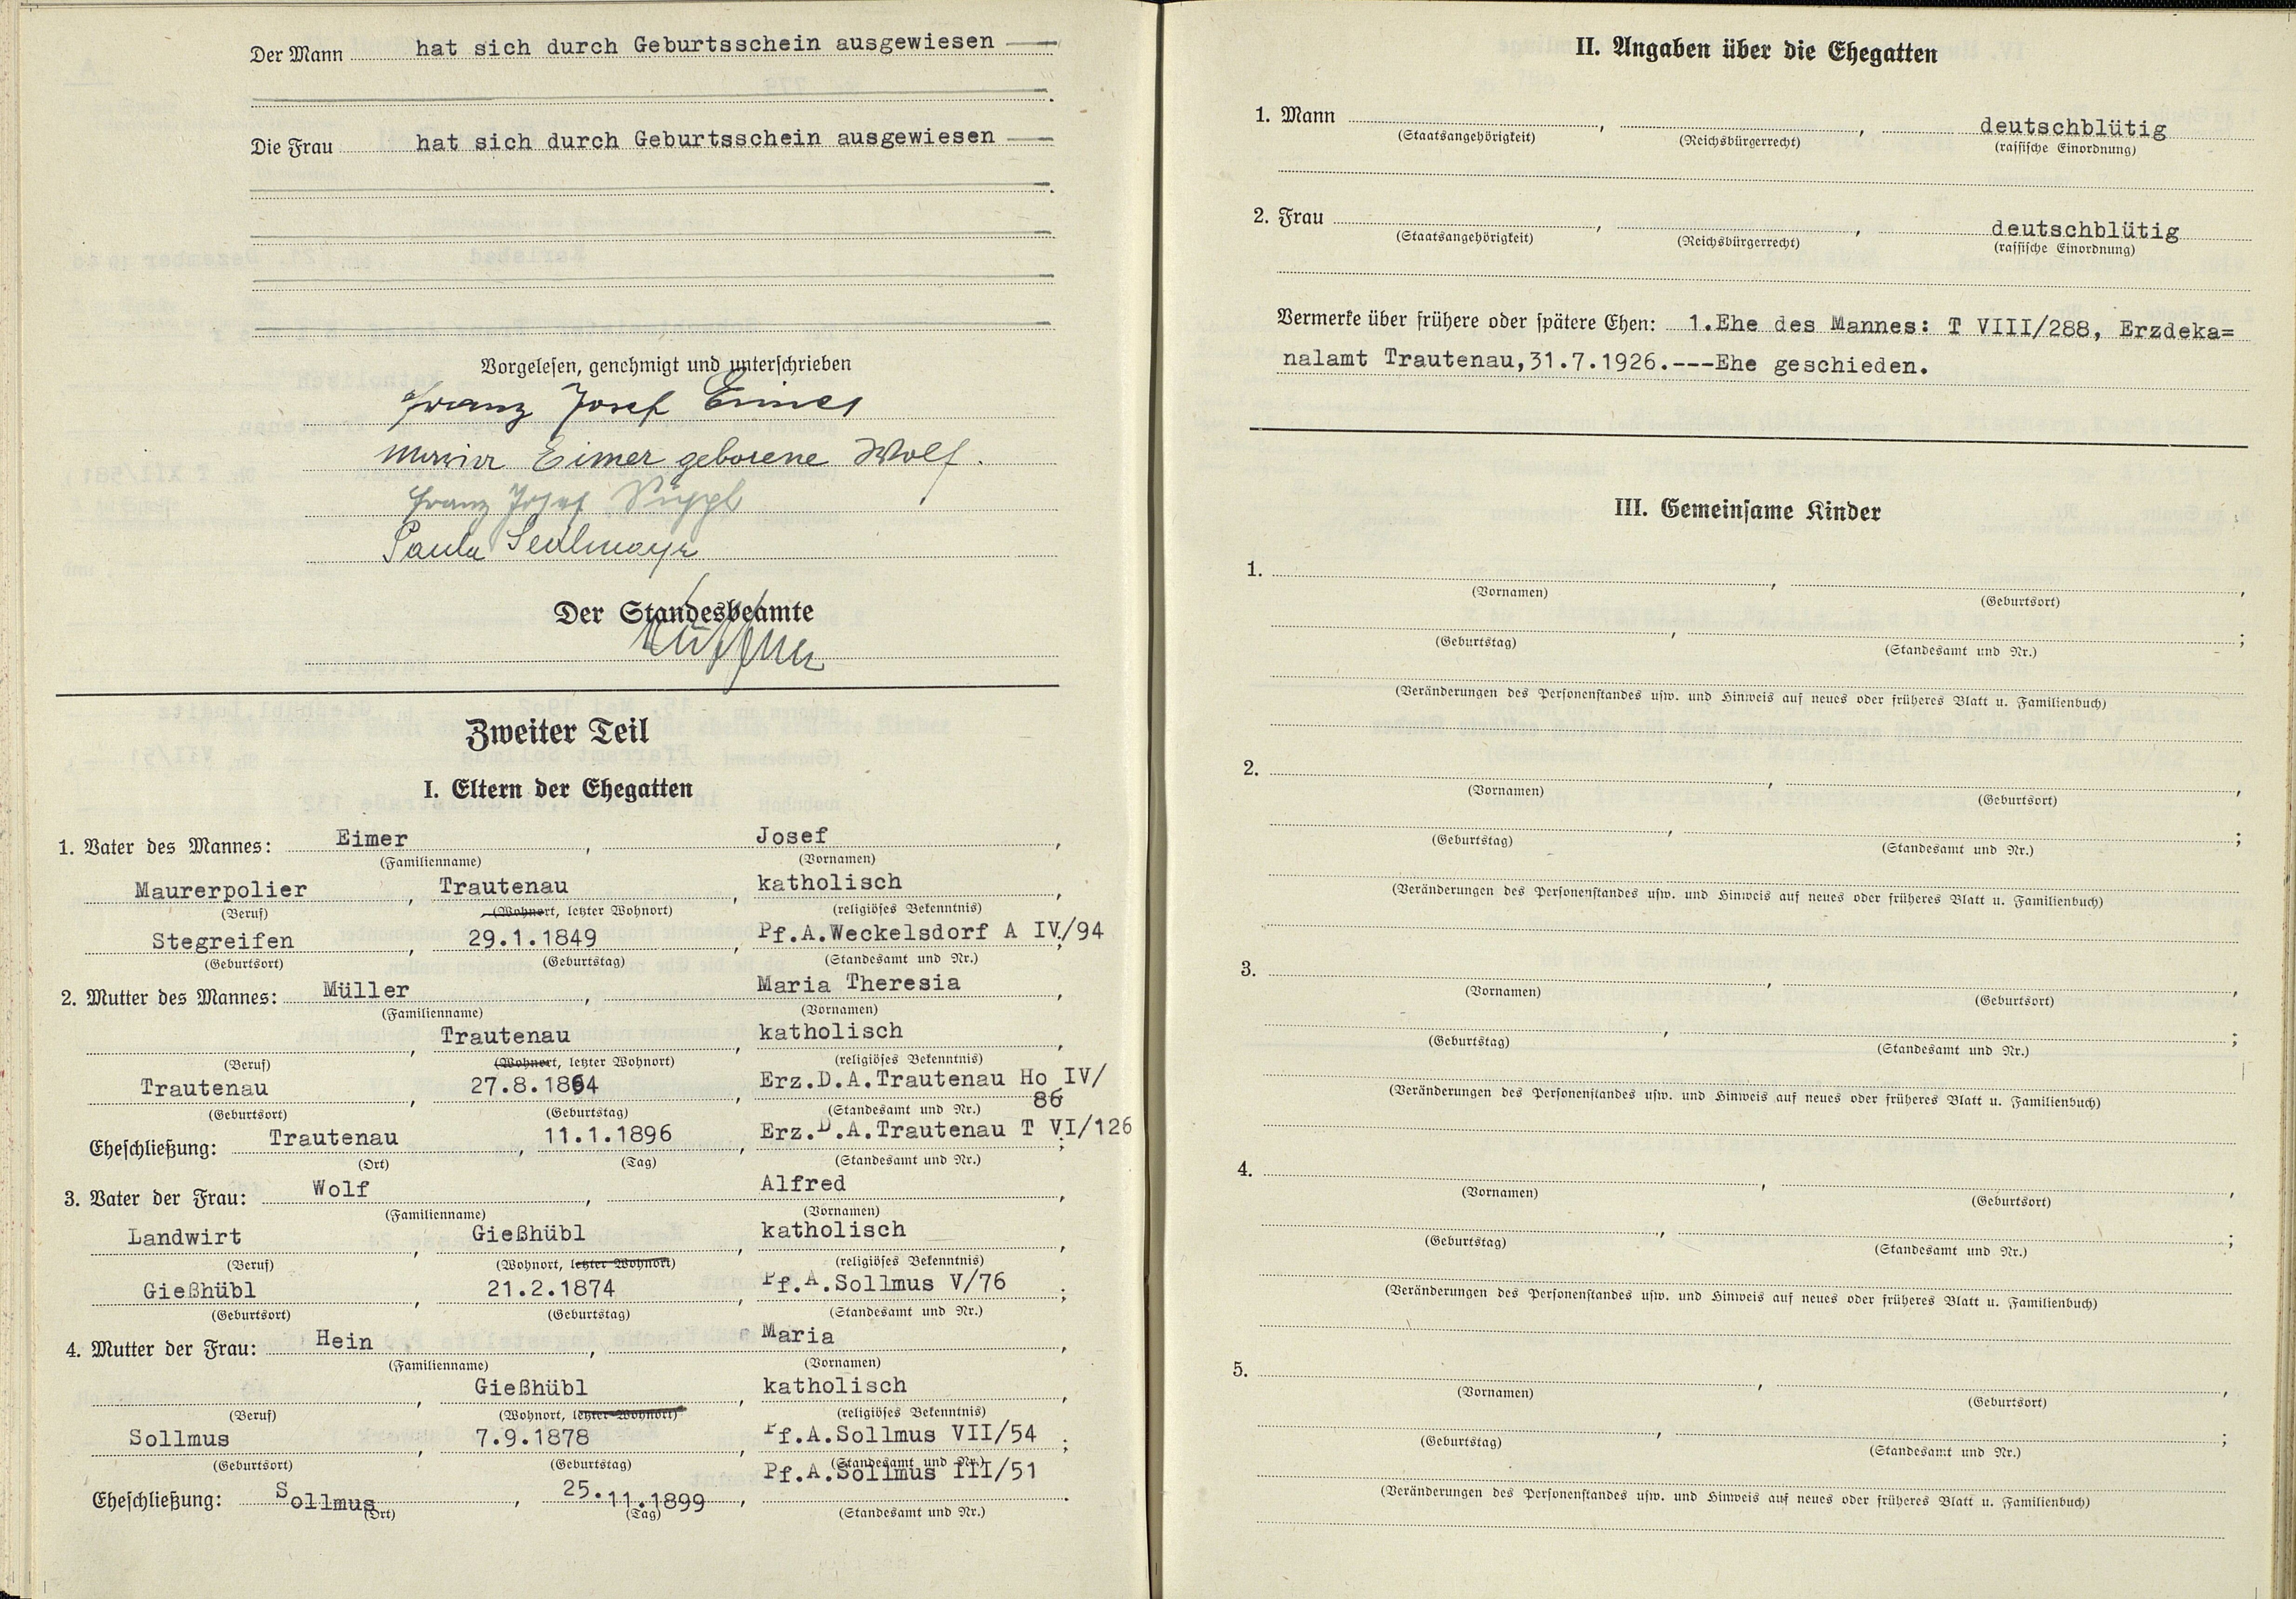 Der Mann hat sich durch Geburtsschein ausgewiesen
Die Frau hat sich durch Geburtsschein ausgewiesen
Vorgelesen, genehmigt und unterschrieben
Franz Josef Eimer
Maria Eimer geborene Wolf.
Franz Josef
Paula Sedlmayr
Der Standesbeamte
Zweiter Teil
I. Eltern der Ehegatten
1. Vater des Mannes: Eimer, Josef,
(Familienname) (Vornamen)
Maurerpolier, Trautenau, katholisch,
(Beruf) (Wohnort, letzter Wohnort) (religiöses Bekenntnis)
Stegreifen, 29.1.1849, Pf.A.Weckelsdorf A IV/94;
(Geburtsort) (Geburtstag) (Standesamt und Nr.)
2. Mutter des Mannes: Müller, Maria Theresia,
(Familienname) (Vornamen)
, Trautenau, katholisch,
(Beruf) (Wohnort, letzter Wohnort) (religiöses Bekenntnis)
Trautenau, 27.8.1864, Erz.D.A.Trautenau Ho IV/
86;
(Geburtsort) (Geburtstag) (Standesamt und Nr.)
Eheschließung: Trautenau, 11.1.1896, Erz.D.A.Trautenau T VI/126;
(Ort) (Tag) (Standesamt und Nr.)
3. Vater der Frau: Wolf, Alfred,
(Familienname) (Vornamen)
Landwirt, Gießhübl, katholisch,
(Beruf) (Wohnort, letzter Wohnort) (religiöses Bekenntnis)
Gießhübl, 21.2.1874, Pf.A.Sollmus V/76;
(Geburtsort) (Geburtstag) (Standesamt und Nr.)
4. Mutter der Frau: Hein, Maria,
(Familienname) (Vornamen)
, Gießhübl, katholisch,
(Beruf) (Wohnort, letzter Wohnort) (religiöses Bekenntnis)
Sollmus, 7.9.1878, Pf.A.Sollmus VII/54;
(Geburtsort) (Geburtstag) (Standesamt und Nr.)
Pf.A.Sollmus III/51
Eheschließung: Sollmus, 25.11.1899, .
(Ort) (Tag) (Standesamt und Nr.)
II. Angaben über die Ehegatten
1. Mann , , deutschblütig
(Staatsangehörigkeit) (Reichsbürgerrecht) (rassische Einordnung)
2. Frau , , deutschblütig
(Staatsangehörigkeit) (Reichsbürgerrecht) (rassische Einordnung)
Vermerke über frühere oder spätere Ehen: 1.Ehe des Mannes: T VIII/288, Erzdeka=
nalamt Trautenau,31.7.1926.---Ehe geschieden.
III. Gemeinsame Kinder
1. , ,
(Vornamen) (Geburtsort)
, ;
(Geburtstag) (Standesamt und Nr.)
(Veränderungen des Personenstandes usw. und Hinweis auf neues oder früheres Blatt u. Familienbuch)
2. , ,
(Vornamen) (Geburtsort)
, ;
(Geburtstag) (Standesamt und Nr.)
(Veränderungen des Personenstandes usw. und Hinweis auf neues oder früheres Blatt u. Familienbuch)
3. , ,
(Vornamen) (Geburtsort)
, ;
(Geburtstag) (Standesamt und Nr.)
(Veränderungen des Personenstandes usw. und Hinweis auf neues oder früheres Blatt u. Familienbuch)
4. , ,
(Vornamen) (Geburtsort)
, ;
(Geburtstag) (Standesamt und Nr.)
(Veränderungen des Personenstandes usw. und Hinweis auf neues oder früheres Blatt u. Familienbuch)
5. , ,
(Vornamen) (Geburtsort)
, ;
(Geburtstag) (Standesamt und Nr.)
(Veränderungen des Personenstandes usw. und Hinweis auf neues oder früheres Blatt u. Familienbuch)